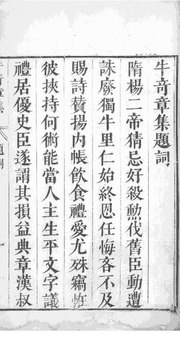 牛奇章集題詞
隋楊二帝猜忌好殺動伐舊臣動遭
誅廢獨牛里仁始終恩任悔吝不及
賜詩贊揚內帳飲食禮愛尤殊竊怪
彼挾持何術能當人主生平文字議
禮居優史臣遂謂其損益典章漢叔